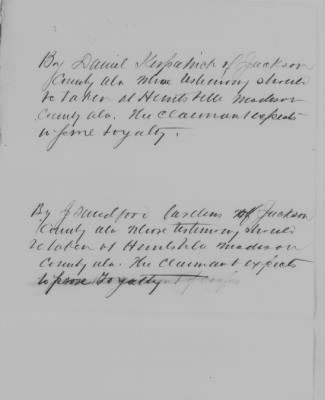 By Daniel Kirpatrick of Jackson
County ala whose testimony should
be taken at Huntsville Madison
County ala. The Claimant expects
to prove Loyalty.
By J Sandford of Jackson
County ala whose testimony should
be taken at Huntsville Madison
County ala. The Claimant expects
to prove Loyalty